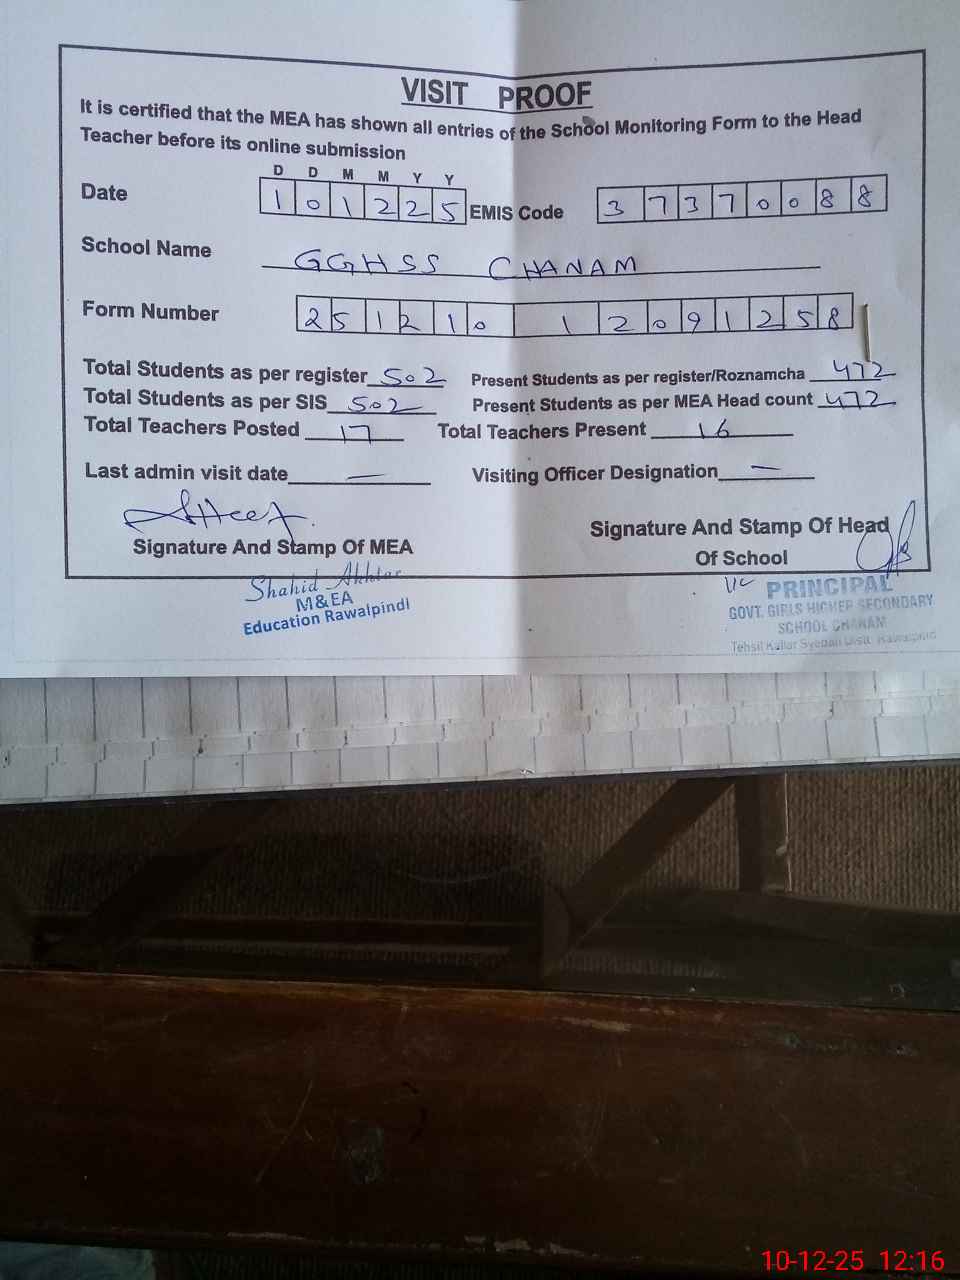 VISIT PROOF
It is certified that the MEA has shown all entries of the School Monitoring Form to the Head
Teacher before its online submission
D D M M Y Y
Date 1 0 1 2 2 5 EMIS Code 3 7 3 7 0 0 8 8
School Name GGHSS CHANAM
Form Number 2 5 1 2 1 0 1 2 0 9 1 2 5 8
Total Students as per register 502 Present Students as per register/Roznamcha 472
Total Students as per SIS 502 Present Students as per MEA Head count 472
Total Teachers Posted 17 Total Teachers Present 16
Last admin visit date — Visiting Officer Designation —
Signature And Stamp Of MEA
Signature And Stamp Of Head
Of School
Shahid Akhtar
M&EA
Education Rawalpindi
I/C PRINCIPAL
GOVT. GIRLS HIGHER SECONDARY
SCHOOL CHANAM
Tehsil Kallar Syedan Distt. Rawalpindi
10-12-25 12:16